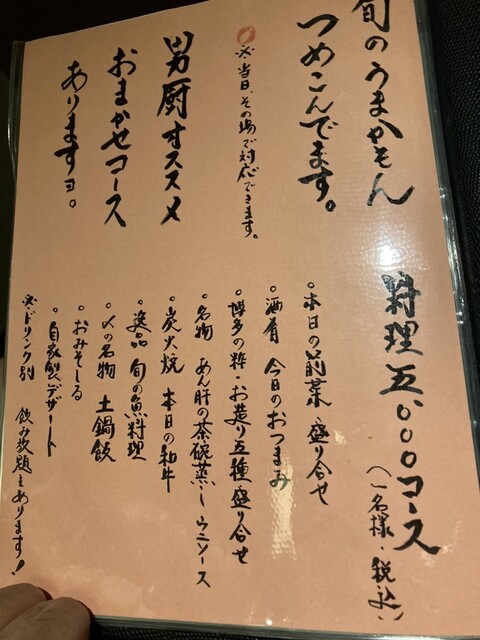 旬のうまかもん
つめこんでます。
※当日、その場で対応できます。
男厨オススメ
おまかせコース
ありますヨ。
料理五、〇〇〇コース
(一名様・税込)
○本日の前菜 盛り合せ
○酒肴 今日のおつまみ
○博多の粋・お造り五種盛り合せ
○名物 あん肝の茶碗蒸し ウニソース
○炭火焼 本日の和牛
○逸品 旬の魚料理
○〆の名物 土鍋飯
○おみそしる
○自家製デザート
※ドリンク別 飲み放題もあります!